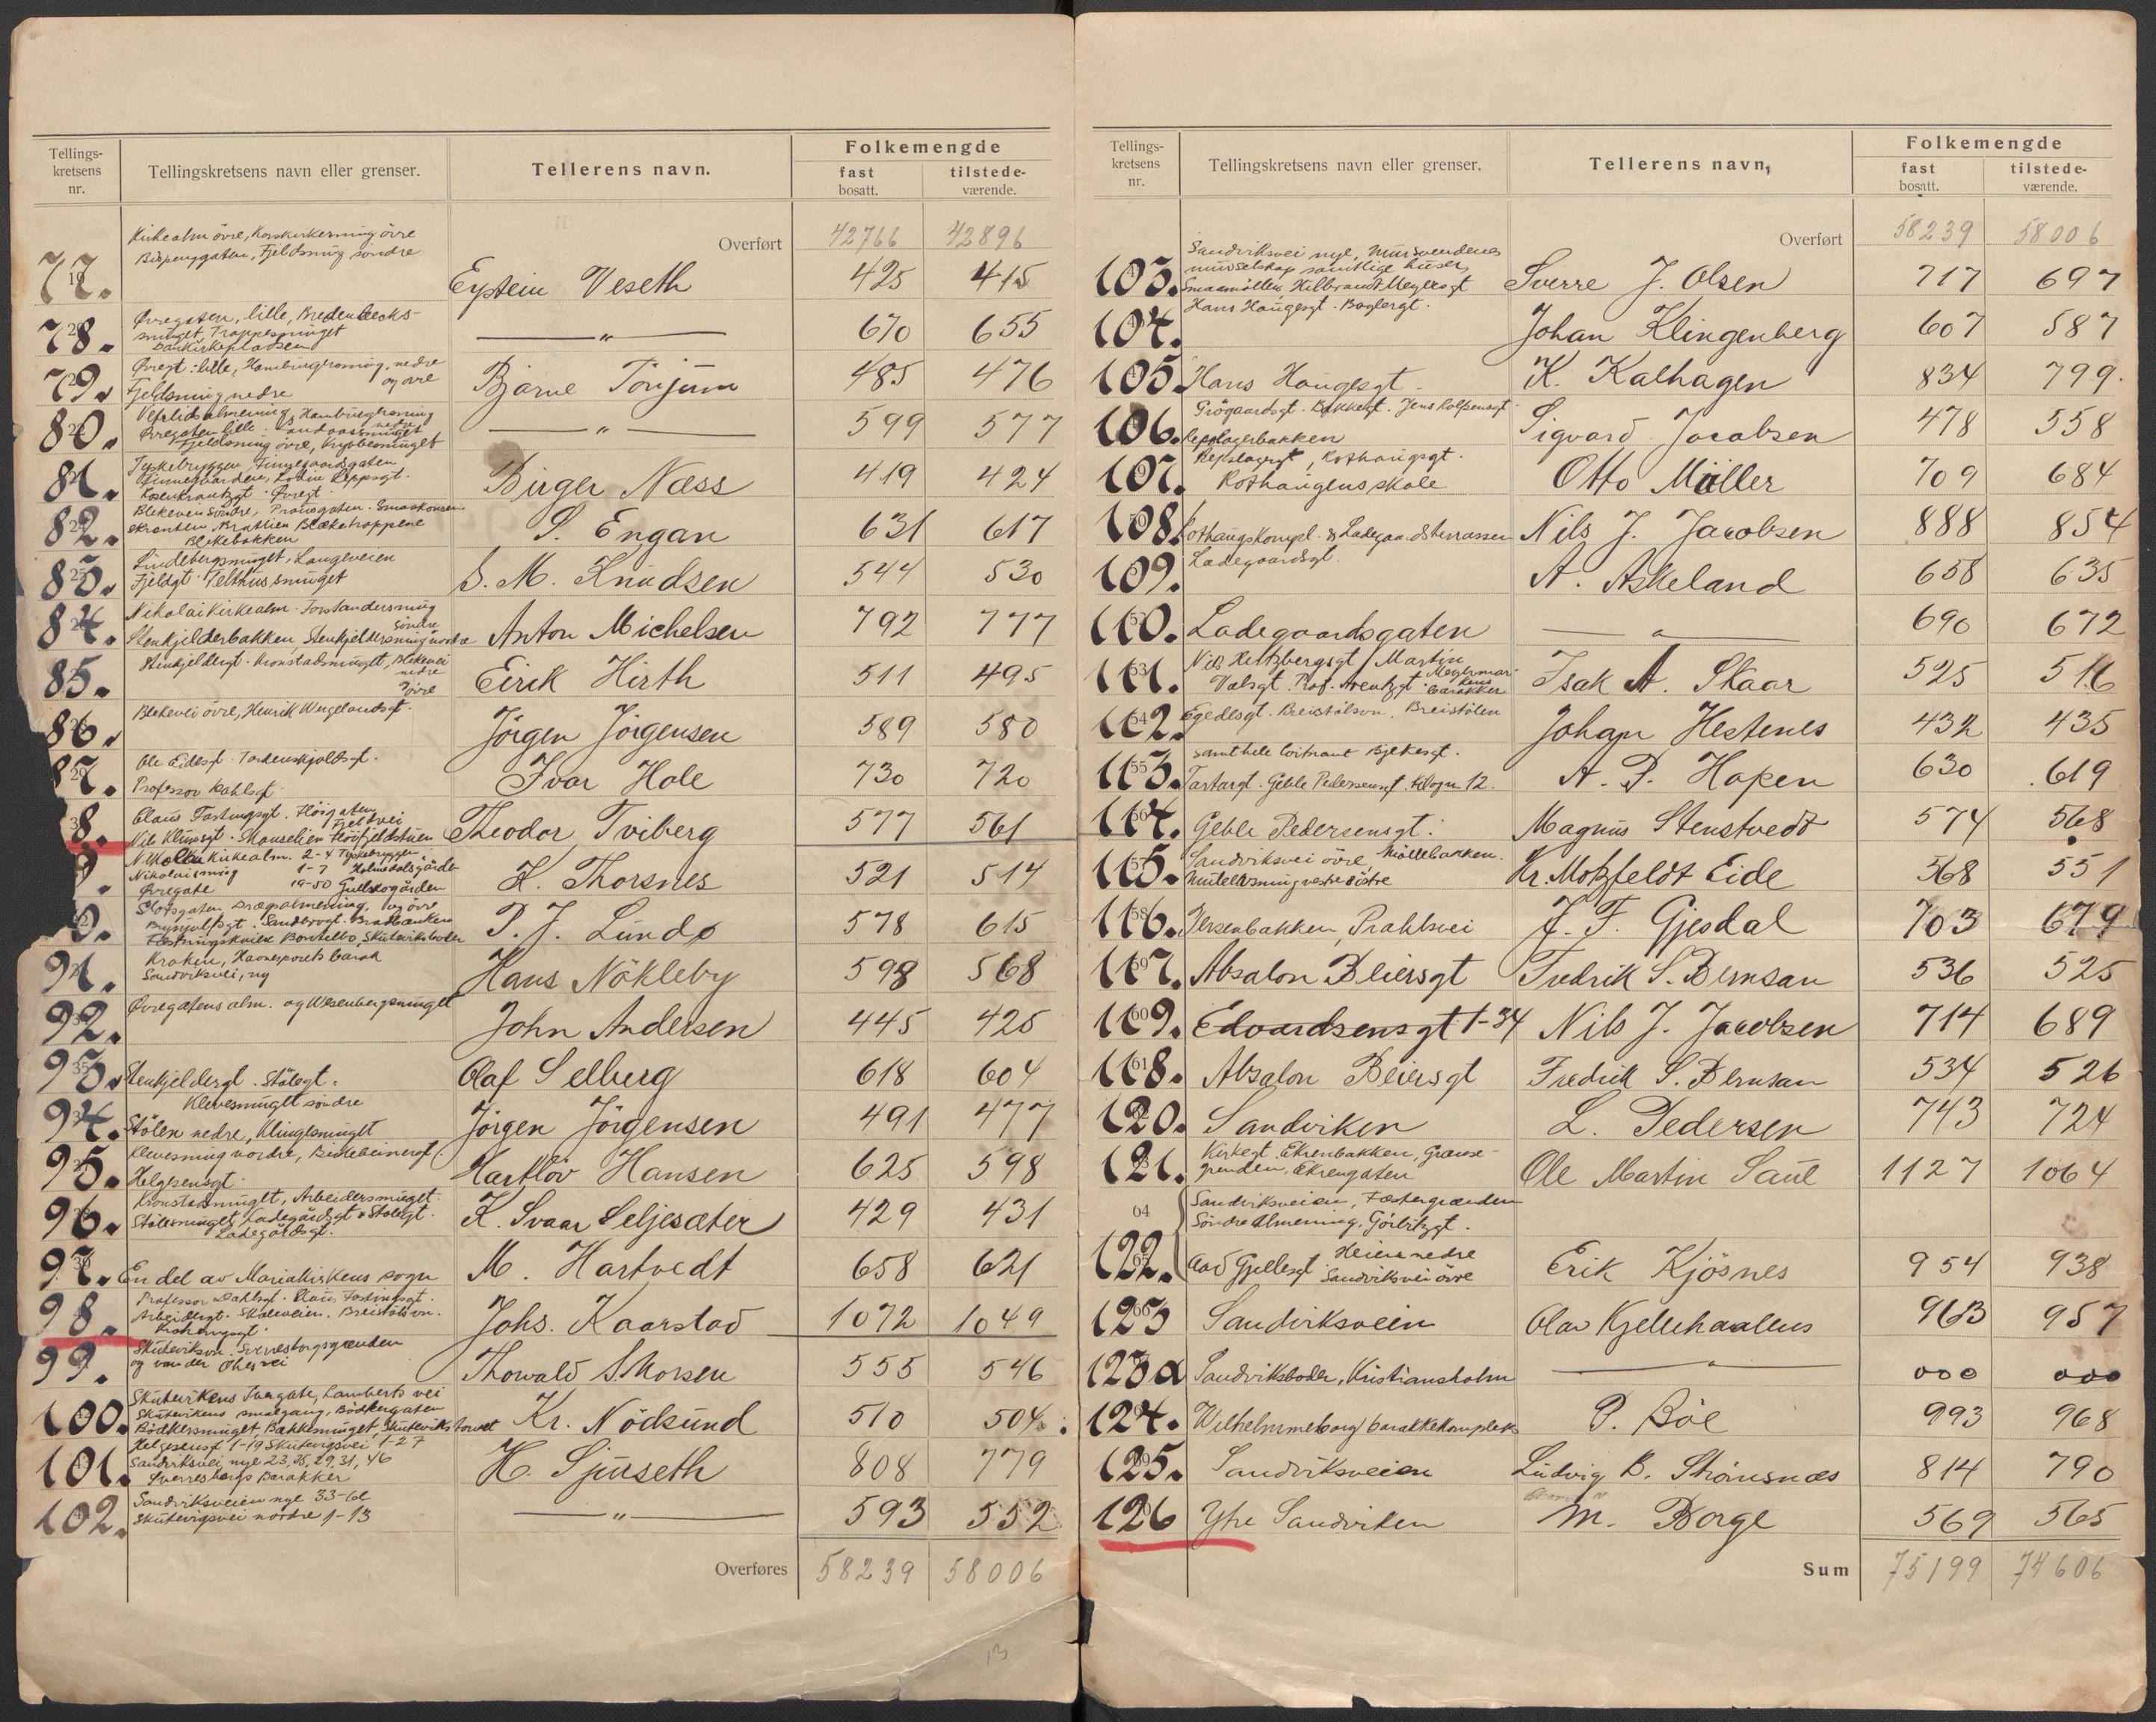 Tellings-
kretsens
nr.
Tellingskretsens navn eller grenser.
Tellerens navn.
Folkemengde
fast
bosatt.
tilstede-
værende.
Overført 42766 42896
Kirkealm övre, Korskirkesmug övre
Bispenggaten, Fjeldsmug söndre
77. Eystein Veseth 425 415
Øvregaten, lille, Bredenbecks-
smuget, Trappesmuget
Domkirkepladsen
78. — " — 670 655
Øvregt. lille, Hamburgersmug, nedre
og övre
Fjeldsmug nedre
79. Bjarne Tonjum 485 476
Vetrlidsalmening, Hamburgersmug
nedre
Øvregaten lille
Fjeldsmug övre, Krybbesmuget
80. — " — 599 577
Tyskebryggen, Finnegaardsgaten
Finnegaardene, Lodin Leppsgt.
Rosenkrantzgt. Øvregt.
81. Birger Næss 419 424
Blekeveien Söndre, Prahsgaten
Skrenten, Bratlien Blekebakken
82. S. Engan 631 617
Lindebergsmuget, Langeveien
Fjeldgt. Telthussmuget
83. S. M. Knudsen 544 530
Nikolaikirkealm. Forstandersmug
söndre
Stenkjelderbakken, Stenkjeldersmug nordre
84. Anton Michelsen 792 777
Stenkjeldergt. Kronstadsmuget, Blekevei
nedre
övre
85. Eirik Hirth 511 495
Blekevei övre, Henrik Wergelandsgt.
86. Jörgen Jörgensen 589 580
Ole Eidesgt. Tordenskjoldsgt.
Professor Dahlsgt.
87. Ivar Hole 730 720
Claus Fastingsgt. Flöigaten
Fjeldvei
Nils Klimsgt. Skanselien Flöifjeldstuen
8. Theodor Tviberg 577 561
Nikolaikirkealm. 2-4 Tyskebryggen
Nikolaismug 1-7 Holmedalsgården
Øvregate 19-50 Gullskogården
9. K. Thorsnes 521 514
Slotsgaten Dræggsalmening, og övre
Brynjulfsgt. Sandbrogt. Bradbænken
Fæstningskaien Bontelabo, Skuteviksboder
0. P. J. Lundø 578 615
Kroken, Kaoneponts barak
Sandviksvei, ny
91. Hans Nökleby 598 568
Øvregatens alm. og Wesenbergsmuget
92. John Andersen 445 425
93. Stenkjeldergt. Stölegt. Olaf Selberg 618 604
Klevesmuget söndre
94. Stölen nedre, Klingesmuget Jörgen Jörgensen 491 477
Klevesmug nordre, Birkebeinergt.
Helgesensgt.
95. Hartlöv Hansen 625 598
Kronstadsmuget, Arbeidersmuget.
Stölesmuget Ladegårdsgt. Stölegt.
Ladegårdsgt.
96. K. Svaar Seljesæter 429 431
97. En del av Mariakirkens sogn M. Hartvedt 658 621
Professor Dahlsgt. Claus Fastingsgt.
Arbeidergt. Skoleveien. Breistölsvn.
98. Johs. Kaarstad 1072 1049
Skuteviksvn. Sverresborgsgrenden
og van der Ohes vei
99. Thorvald S. Morsen 555 546
Skutevikens Tvergate, Lamberts vei
Skutevikens smalgang, Bödkergaten
Bödkersmuget, Bakkesmuget, Skutevikstorvet
100. Kr. Nödsund 510 504.
Helgesensgt 1-19 Skutevigsvei 1-27
Sandviksvei nye 23, 25, 29, 31, 46
Sverresborgs Barakker
101. H. Sjurseth 808 779
Sandviksveien nye 33-61
Skutevigsvei nordre 1-13
102. — " — 593 552
Overføres 58239 58006
13
Tellings-
kretsens
nr.
Tellingskretsens navn eller grenser.
Tellerens navn,
Folkemengde
fast
bosatt.
tilstede-
værende.
Overført 58239 58006
Sandviksvei nye, Mursvendenes
murselskap samtlige huser,
Smaamöllen Hilbrandt Meyersgt
Hans Haugesgt. Boglergt.
103. Sverre J. Olsen 717 697
104. Johan Klingenberg 607 587
105. Hans Haugesgt K. Kalhagen 834 799.
Grögaardsgt. Bakkegt. Jens Rolfsensgt
Repslagerbakken
106. Sigvard Jacobsen 478 558
Repslagergt, Rothaugsgt.
Rothaugens skole
107. Otto Müller 709 684
108. Rothaugskompl. & Ladegaardsterrassen Nils J. Jacobsen 888 854
109. Ladegaardsgt. A. Askeland 658 635
110. Ladegaardsgaten — " — 690 672
Nils Hertzbergsgt, Martin
Valsgt. Prof. Arentzgt. Meyermar
kens
barakker
111. Isak A. Skaar 525 516
112. Egedesgt. Breistölsvn. Breistölen Johan Hestenes 432 435
113. A. P. Hapen 630 619
114. Geble Pedersensgt. Magnus Stenstvedt 574 568
Sandviksvei övre, Möllebakken.
115. Kr. Motzfeldt Eide 568 551
116. Iversenbakken, Prahlsvei J. F. Gjesdal 703 679
117. Absalon Beiersgt Fredrik S. Berntsen 536 525
119. Edvardsensgt 1-34 Nils J. Jacobsen 714 689
118. Absalon Beiersgt Fredrik S. Berntsen 534 526
120. Sandviken L. Pedersen 743 724
Kirkegt. Ekrenbakken, Grænse-
grenden, Ekrengaten
121. Ole Martin Saul 1127 1064
64 Sandviksveien, Fæstergrænden
Söndre Almening, Görbitzgt.
Heien nedre
122. Aad Gjellesgt. Sandviksvei övre Erik Kjösnes 954 938
123 Sandviksveien Olav Kjellehaalens 963 957
123a Sandviksboder, Kristiansholm — " — 000 000
124. Wilhelmineborg barakkekompleks P. Böe 993 968
125. Sandviksveien Ludvig B. Strömsnes 814 790
126 Ytre Sandviken M. Borge 569 565
Sum 75199 74606